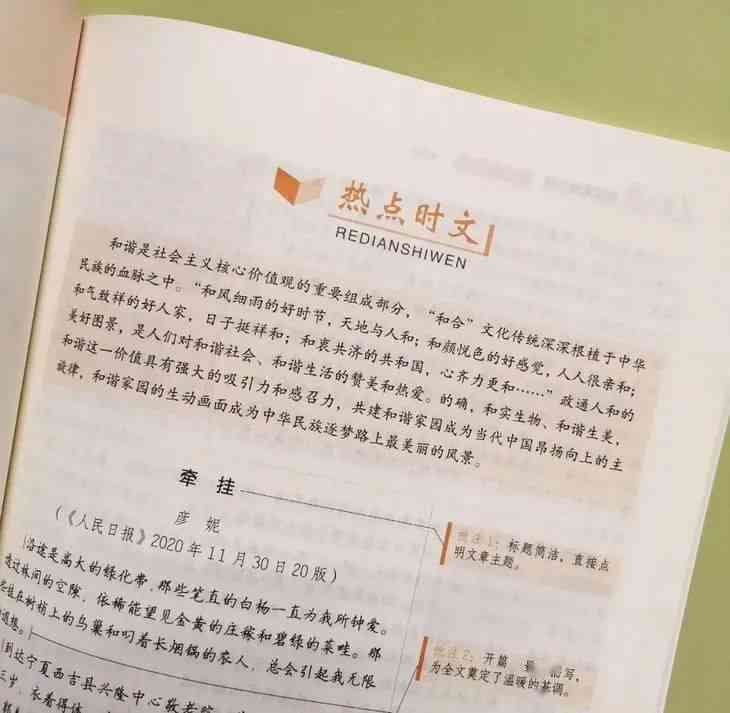 热点时文
REDIANSHIWEN
和谐是社会主义核心价值观的重要组成部分，“和合”文化传统深深根植于中华
民族的血脉之中。“和风细雨的好时节，天地与人和；和颜悦色的好感觉，人人很亲和；
和气致祥的好人家，日子挺祥和；和衷共济的共和国，心齐力更和……”政通人和的
美好图景，是人们对和谐社会、和谐生活的赞美和热爱。的确，和实生物、和谐生美，
和谐这一价值具有强大的吸引力和感召力，共建和谐家园成为当代中国昂扬向上的主
旋律，和谐家园的生动画面成为中华民族逐梦路上最美丽的风景。
牵挂
彦妮
（《人民日报》2020年11月30日20版）
沿途是高大的绿化带，那些笔直的白杨一直为我所钟爱。
透过林间的空隙，依稀能望见金黄的庄稼和碧绿的菜畦。那
挂在树梢上的鸟巢和叼着长烟锅的农人，总会引起我无限
遐想。
到达宁夏西吉县兴隆中心敬老院
三岁，衣着得体
批注1：标题简洁，直接点
明文章主题。
批注2：开篇 写，
为全文奠定了温暖的基调。